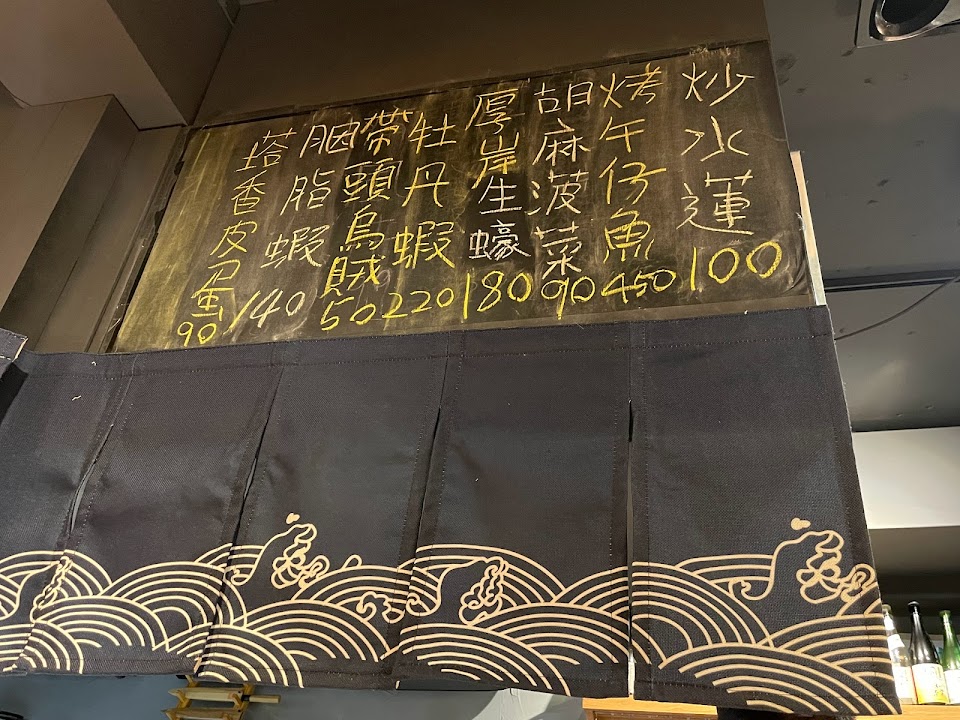 炒水蓮100
烤午仔魚450
胡麻菠菜90
厚岸生蠔180
牡丹蝦220
帶頭烏賊50
胭脂蝦140
塔香皮蛋90